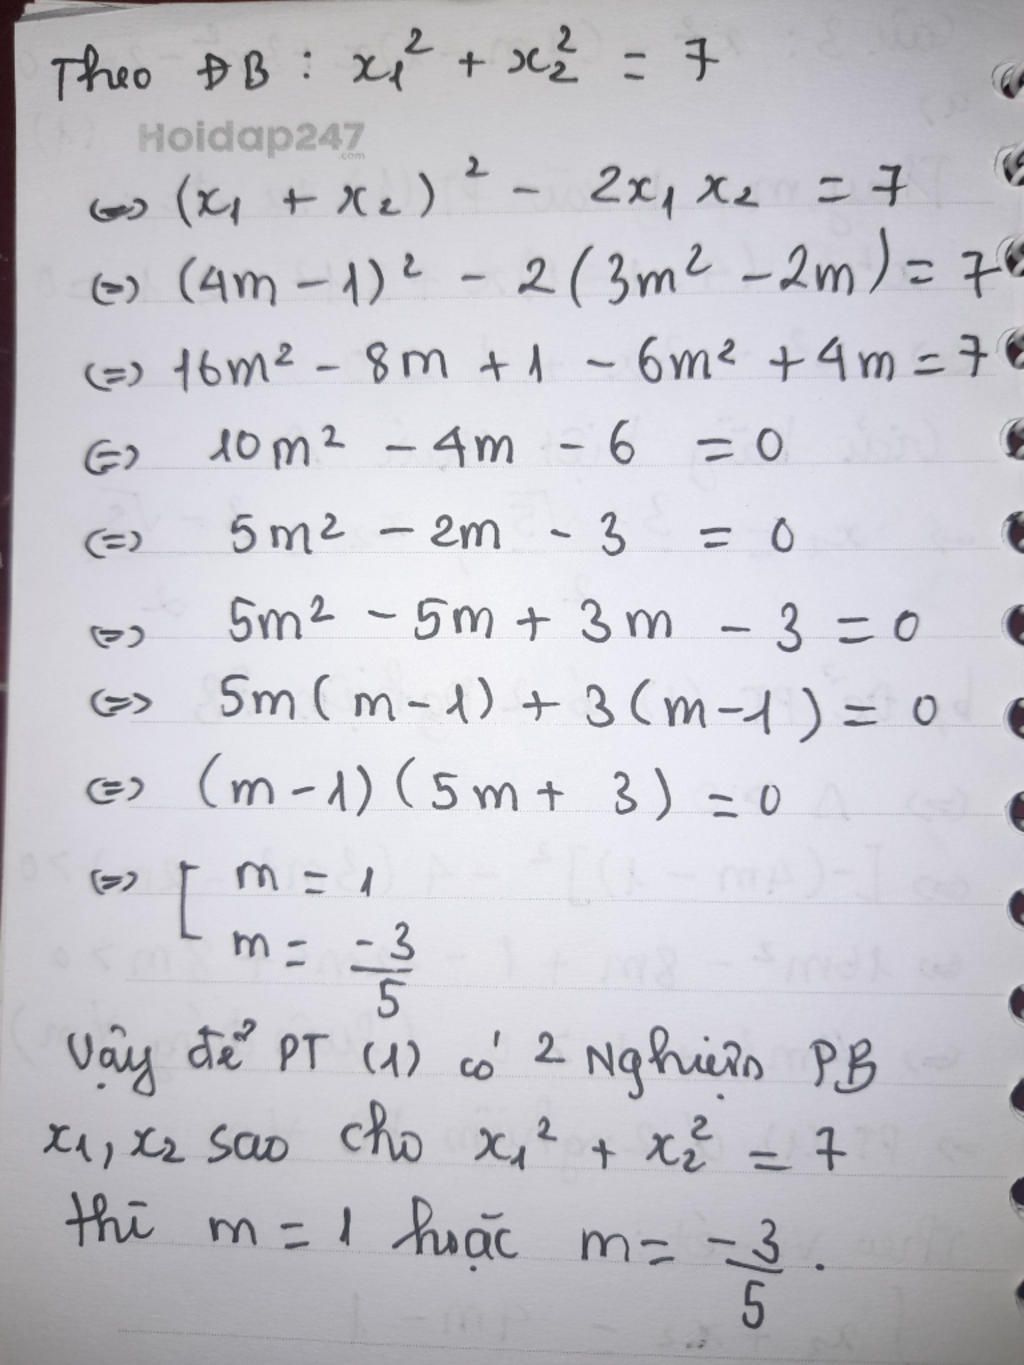 Theo ĐB : x₁² + x₂² = 7
Hoidap247
.com
⇔ (x₁ + x₂)² - 2x₁ x₂ = 7
⇔ (4m - 1)² - 2(3m² - 2m) = 7
⇔ 16m² - 8m + 1 - 6m² + 4m = 7
⇔ 10m² - 4m - 6 = 0
⇔ 5m² - 2m - 3 = 0
⇔ 5m² - 5m + 3m - 3 = 0
⇔ 5m(m-1) + 3(m-1) = 0
⇔ (m-1)(5m + 3) = 0
⇔ [ m = 1
m = -3/5
Vậy để PT (1) có 2 Nghiệm PB
x₁, x₂ sao cho x₁² + x₂² = 7
thì m = 1 hoặc m = -3/5 .